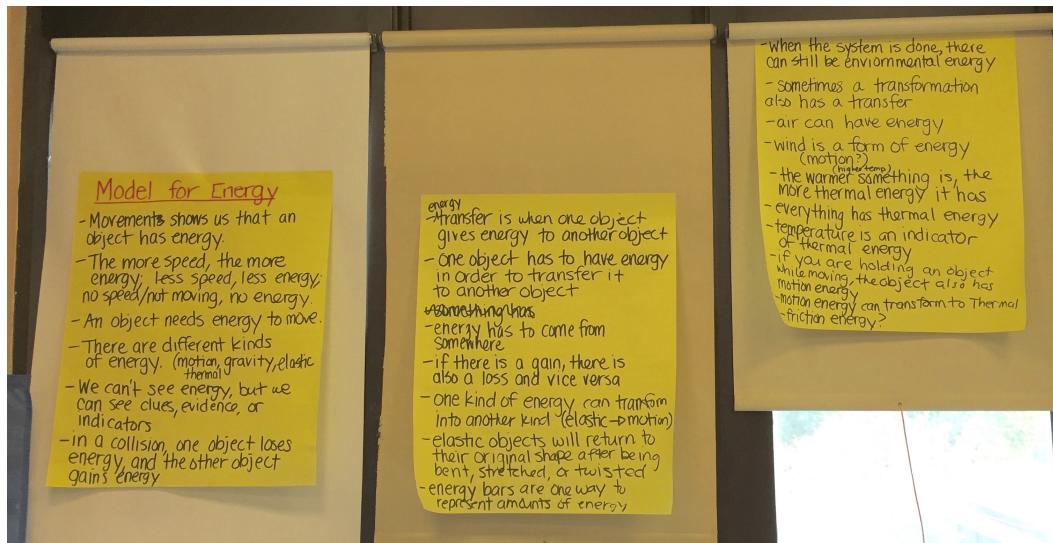 Model for Energy
-Movements shows us that an
object has energy.
-The more speed, the more
energy; less speed, less energy;
no speed/not moving, no energy.
-An object needs energy to move.
-There are different kinds
of energy. (motion, gravity, elastic
thermal)
-We can't see energy, but we
can see clues, evidence, or
indicators
-in a collision, one object loses
energy, and the other object
gains energy
energy
-transfer is when one object
gives energy to another object
-one object has to have energy
in order to transfer it
to another object
-something has
-energy has to come from
somewhere
-if there is a gain, there is
also a loss and vice versa
-one kind of energy can transform
into another kind (elastic→motion)
-elastic objects will return to
their original shape after being
bent, stretched, or twisted
-energy bars are one way to
represent amounts of energy
-when the system is done, there
can still be enviornmental energy
-sometimes a transformation
also has a transfer
-air can have energy
-wind is a form of energy
(motion?)
(higher temp)
-the warmer something is, the
more thermal energy it has
-everything has thermal energy
-temperature is an indicator
of thermal energy
-if you are holding an object
while moving, the object also has
motion energy
-motion energy can transform to Thermal
-friction energy?